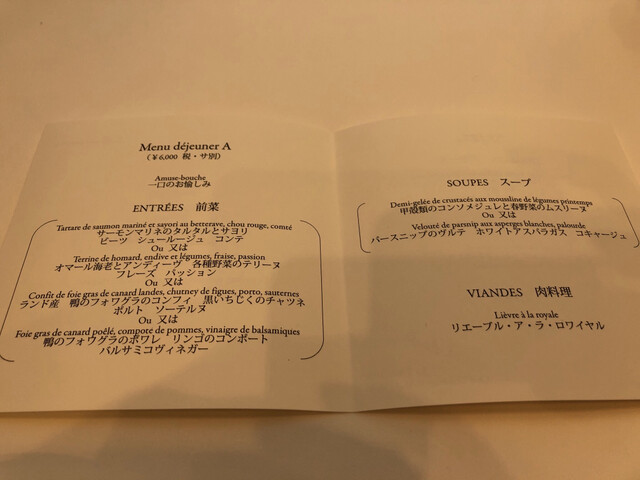 Menu déjeuner A
(￥6,000 税・サ別)
Amuse-bouche
一口のお愉しみ
ENTRÉES 前菜
Tartare de saumon mariné et sayori au betterave, chou rouge, comté
サーモンマリネのタルタルとサヨリ
ビーツ シュールージュ コンテ
Ou 又は
Terrine de homard, endive et légumes, fraise, passion
オマール海老とアンディーヴ 各種野菜のテリーヌ
フレーズ パッション
Ou 又は
Confit de foie gras de canard landes, chutney de figues, porto, sauternes
ランド産 鴨のフォワグラのコンフィ 黒いちじくのチャツネ
ポルト ソーテルヌ
Ou 又は
Foie gras de canard poêlé, compote de pommes, vinaigre de balsamiques
鴨のフォワグラのポワレ リンゴのコンポート
バルサミコヴィネガー
SOUPES スープ
Demi-gelée de crustacés aux mousseline de légumes printemps
甲殻類のコンソメジュレと春野菜のムスリーヌ
Ou 又は
Velouté de parsnip aux asperges blanches, palourde
パースニップのヴルテ ホワイトアスパラガス コキャージュ
VIANDES 肉料理
Lièvre à la royale
リエーブル・ア・ラ・ロワイヤル